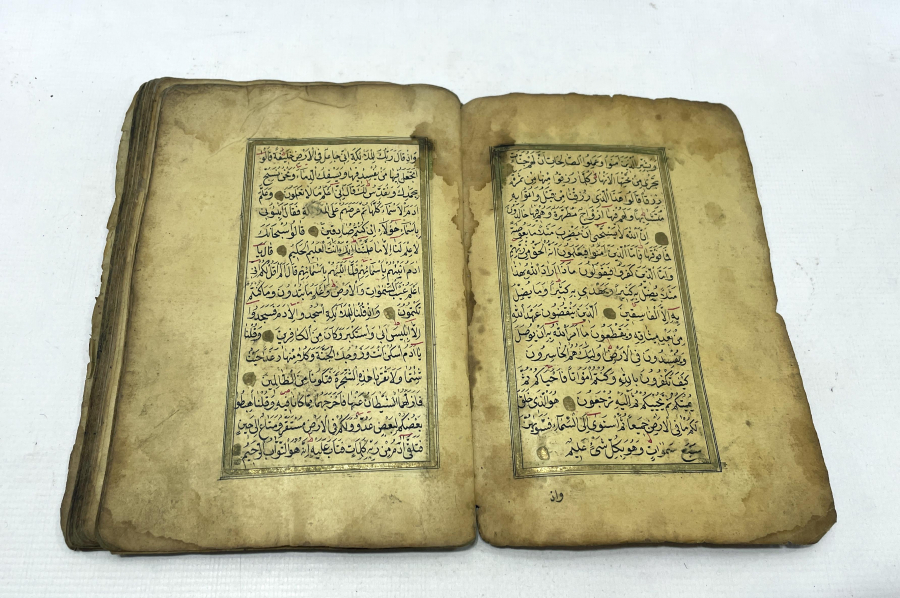 وبشر الذين آمنوا وعملوا الصالحات ان لهم جنات
تجري من تحتها الانهار كلما رزقوا منها من ثمرة
رزقا قالوا هذا الذي رزقنا من قبل واتوا به
متشابها ولهم فيها ازواج مطهرة وهم فيها خالدون
ان الله لا يستحيي ان يضرب مثلا ما بعوضة
فما فوقها فاما الذين آمنوا فيعلمون انه الحق من ربهم
واما الذين كفروا فيقولون ماذا اراد الله بهذا
مثلا يضل به كثيرا ويهدي به كثيرا وما يضل
به الا الفاسقين الذين ينقضون عهد الله
من بعد ميثاقه ويقطعون ما امر الله به ان يوصل
ويفسدون في الارض اولئك هم الخاسرون
كيف تكفرون بالله وكنتم امواتا فاحياكم ثم
يميتكم ثم يحييكم ثم اليه ترجعون هو الذي خلق
لكم ما في الارض جميعا ثم استوى الى السماء فسويهن
سبع سموات وهو بكل شئ عليم
واذ
واذ قال ربك للملائكة اني جاعل في الارض خليفة قالوا
اتجعل فيها من يفسد فيها ويسفك الدماء ونحن نسبح
بحمدك ونقدس لك قال اني اعلم ما لا تعلمون وعلم
ادم الاسماء كلها ثم عرضهم على الملائكة فقال انبئوني
باسماء هؤلاء ان كنتم صادقين قالوا سبحانك
لا علم لنا الا ما علمتنا انك انت العليم الحكيم قال يا
ادم انبئهم باسمائهم فلما انبأهم باسمائهم قال الم اقل لكم اني
اعلم غيب السموات والارض واعلم ما تبدون وما كنتم
تكتمون واذ قلنا للملائكة اسجدوا لادم فسجدوا
الا ابليس ابى واستكبر وكان من الكافرين وقلنا
يا ادم اسكن انت وزوجك الجنة وكلا منها رغدا حيث
شئتما ولا تقربا هذه الشجرة فتكونا من الظالمين
فازلهما الشيطان عنها فاخرجهما مما كانا فيه وقلنا اهبطوا
بعضكم لبعض عدو ولكم في الارض مستقر ومتاع الى حين
فتلقى آدم من ربه كلمات فتاب عليه انه هو التواب الرحيم